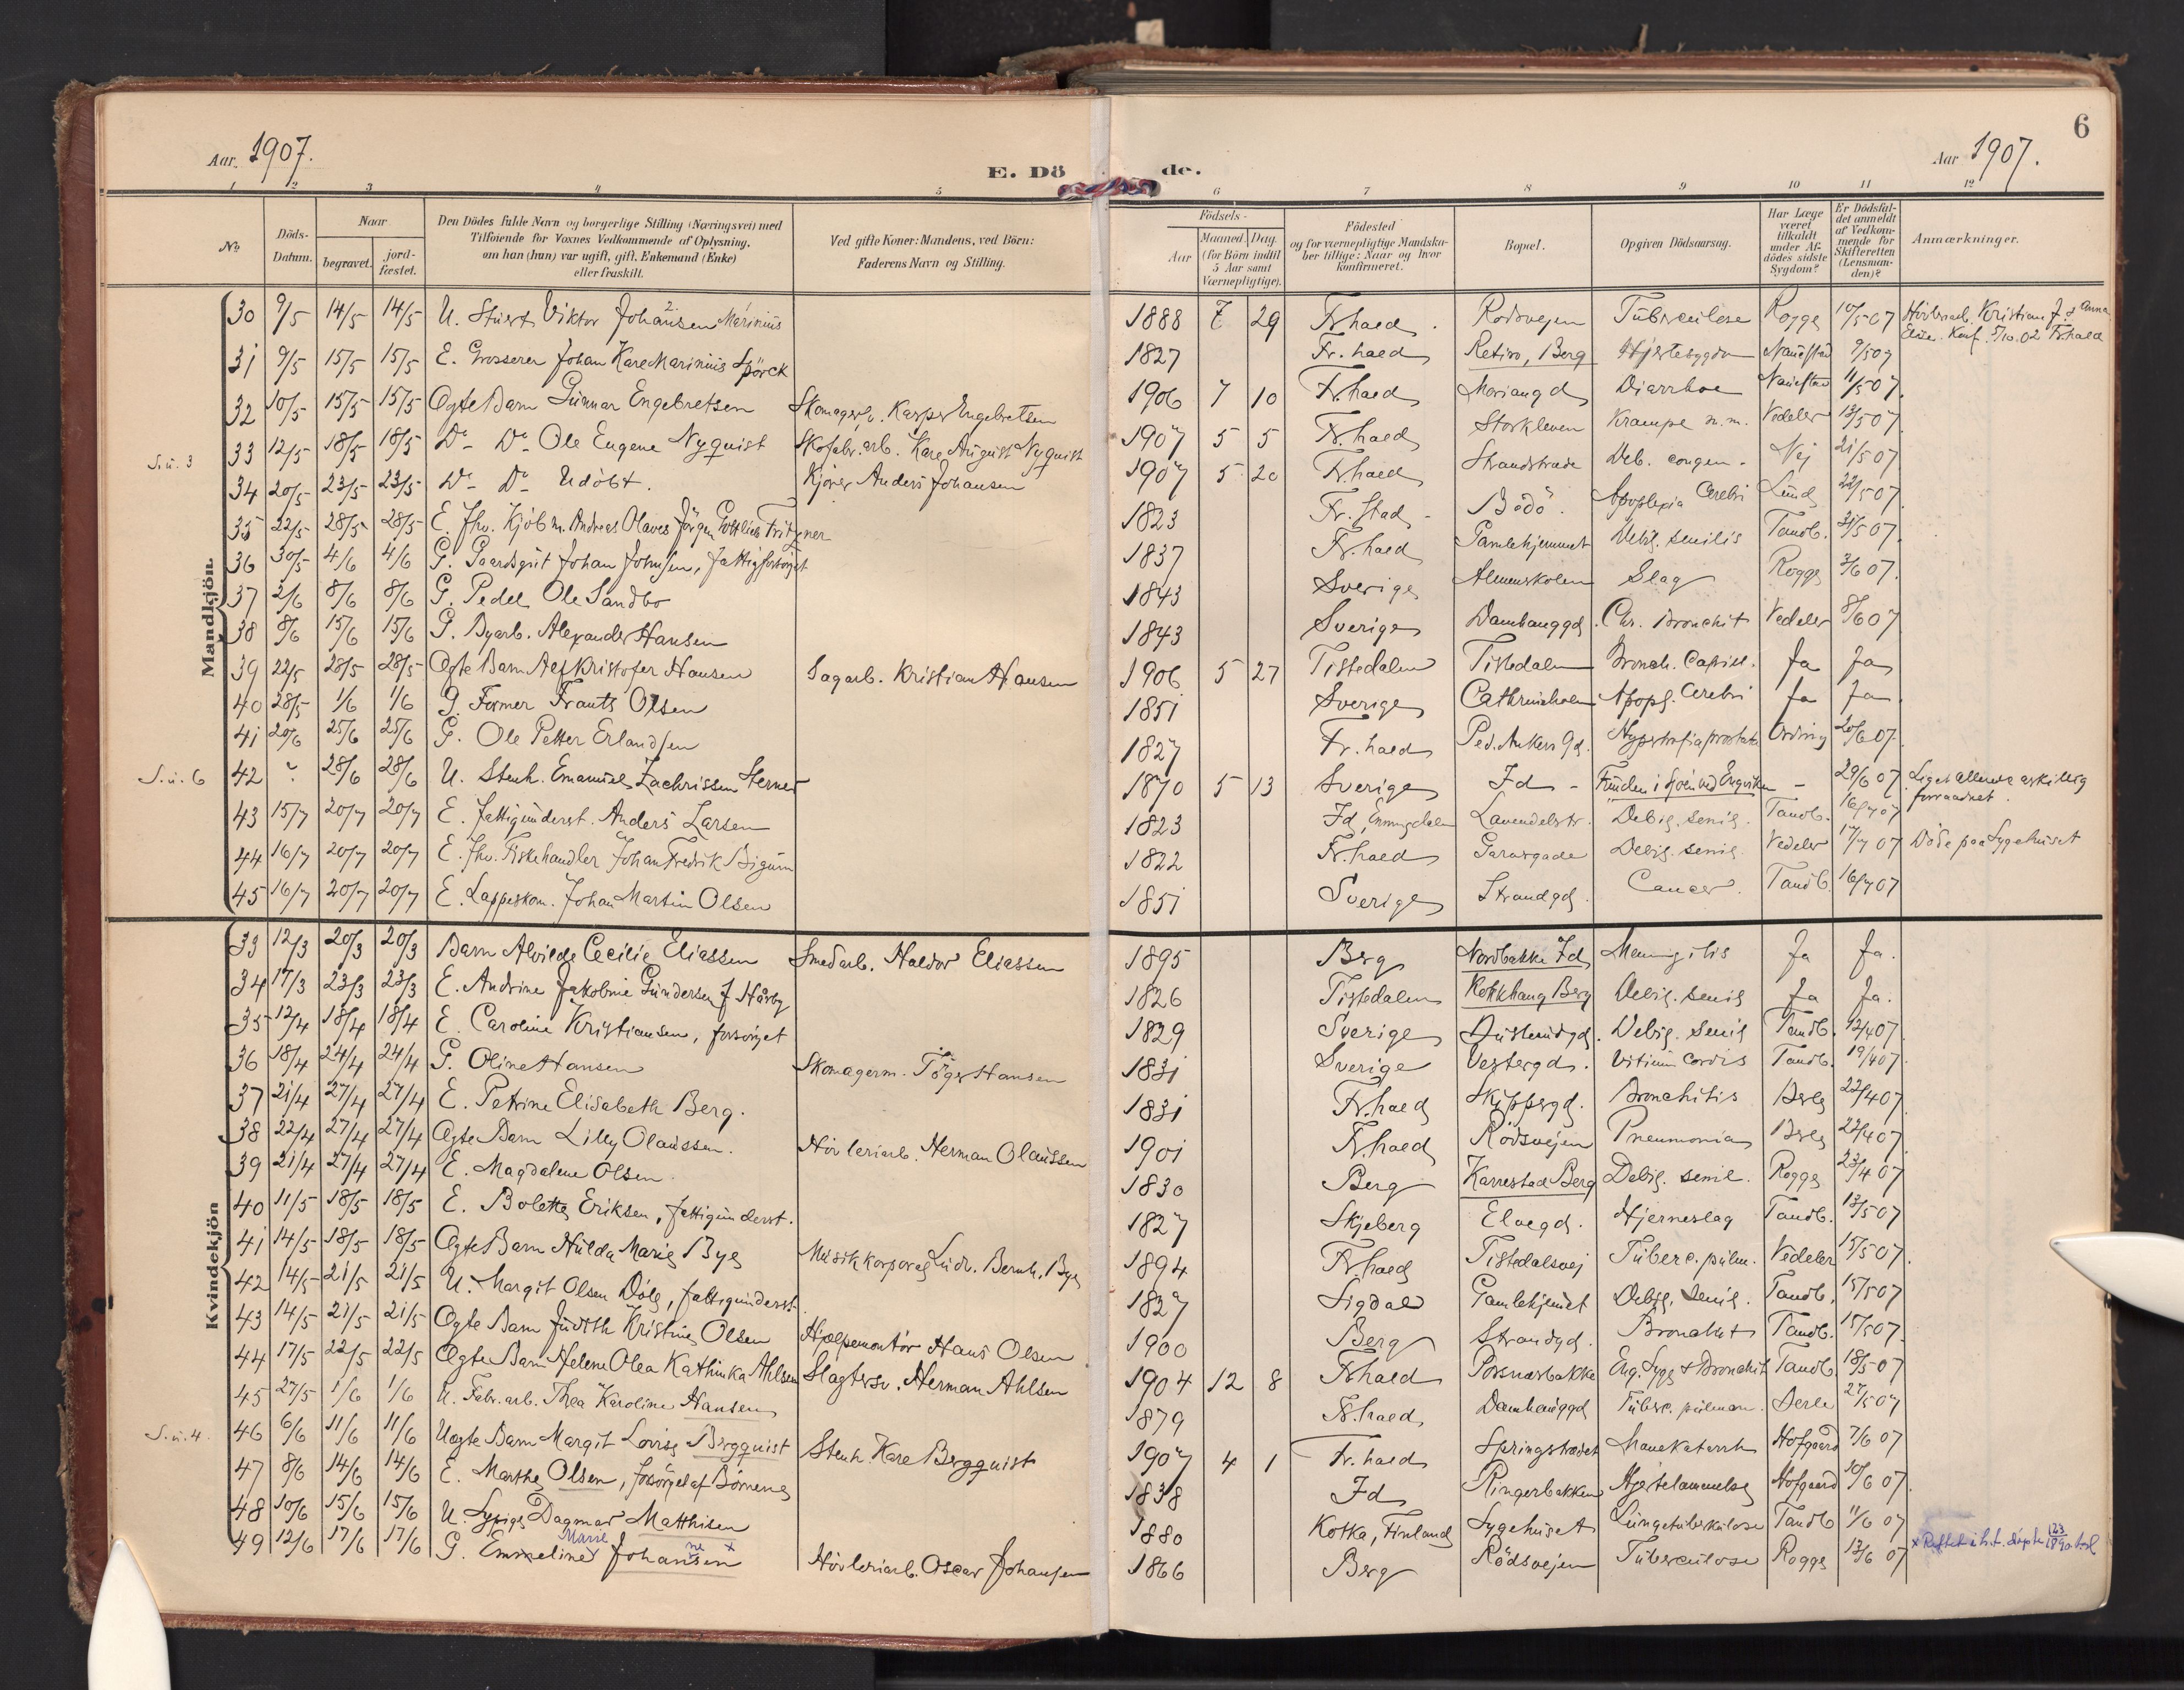 6
Aar. 1907.
E. Dö de.
Aar 1907.
1 2 3 4 5 6 7 8 9 10 11 12
No
Döds-Datum.
Naar
begravet. jordfæstet.
Den Dödes fulde Navn og borgerlige Stilling (Næringsvei) med
Tilföiende for Voxnes Vedkommende af Oplysning,
om han (hun) var ugift, gift, Enkemand (Enke)
eller fraskilt.
Ved gifte Koner: Mandens, ved Börn:
Faderens Navn og Stilling.
Födsels-
Aar Maaned. Dag.
(for Börn indtil
5 Aar samt
Værnepligtige).
Födested
og for værnepligtige Mandskaber tillige: Naar og hvor
konfirmeret.
Bopæl.
Opgiven Dödsaarsag.
Har Læge
været
tilkaldt
under Afdödes sidste
Sygdom?
Er Dödsfaldet anmeldt
af Vedkommende for
Skifteretten
(Lensmanden)?
Anmærkninger.
Mandkjön.
30 9/5 14/5 14/5 U. Stuert Viktor Johansen Marinius 1888 7 29 Fr.hald Rødsvejen Tuberculose Rogge 10/5 07 Høvleriarb. Kristian J. & Anna
Elise. Konf. 5/10.02 Fr.hald
31 9/5 15/5 15/5 E. Grosserer Johan Karl Marinius Spörck 1827 Fr.hald Retiro, Berg Hjertesygdom 9/5 07
32 10/5 15/5 15/5 Ægte Barn Gunnar Engebretsen Skomagersv. Kasper Engebretsen 1906 7 10 Fr.hald Mariangd Diarrhoe 11/5 07
S.u. 3 33 12/5 18/5 18/5 Do Do Ole Eugene Nyquist Skofabr.arb. Karl August Nyquist 1907 5 5 Fr.hald Storkleven Krampe m.m. Vedeler 13/5 07
34 20/5 23/5 23/5 Do Do Udöbt. Kjörer Anders Johansen 1907 5 20 Fr.hald Strandstræde Deb. congen. Nej 21/5 07
35 22/5 28/5 28/5 E. Fhv. Kjöbm. Andreas Olaves Jörgen Gottlieb Fritzner 1823 Fr.stad Bödö. Apoplexia Cerebri Lund 22/5 07
36 30/5 4/6 4/6 G. Gaardsgut Johan Johnsen, fattigforsörget 1837 Fr.hald Gamlehjemmet Debil. senilis Tandb. 31/5 07
37 2/6 8/6 8/6 G. Pedel Ole Sandbo 1843 Sverige Almenskolen Slag Rogge 3/6 07
38 8/6 15/6 15/6 G. Byarb. Alexander Hansen 1843 Sverige Damhauggd. Chr. Bronchit Vedeler 8/6 07
39 22/5 28/5 28/5 Ægte Barn Alf Kristofer Hansen Sagarb. Kristian Hansen 1906 5 27 Tistedalen Tistedalen Bronch. Capill. Ja Ja
40 28/5 1/6 1/6 G. Former Frants Olsen 1851 Sverige Cathrineholm Apopl. Cerebri Ja Ja
41 20/6 25/6 25/6 G. Ole Petter Erlandsen 1827 Fr.hald Ped. Ankers Gd. Hypertrofia prostata Ording 20/6 07
S.u. 6 42 ? 28/6 28/6 U. Stenh. Emanuel Zachrissen Sterner 1870 5 13 Sverige Id Funden i Sjöen ved - 29/6 07 Liget allerede adskillig
forraadnet.
43 15/7 20/7 20/7 E. fattigunderst. Anders Larsen 1823 Id, Enningdalen Lavendelstr. Debil. senil. Tandb. 16/7 07
44 16/7 20/7 20/7 E. Fhv. Fiskehandler Johan Fredrik Bigum 1822 Fr.hald Garvergade Debil. senil. Vedeler 17/7 07 Döde paa Sygehuset
45 16/7 20/7 20/7 E. Lappeskom. Johan Martin Olsen 1851 Sverige Strandgd. Cancer. Tandb. 16/7 07
Kvindekjön
33 12/3 20/3 20/3 Barn Alvilde Cecilie Eliassen Smedarb. Haldor Eliassen 1895 Berg Nordbakke Id Meningitis Ja Ja.
34 17/3 23/3 23/3 E. Andrine Jakobine Gundersen f. Hårby 1826 Tistedalen Kokkhaug Berg Debil. senil Ja Ja.
35 12/4 18/4 18/4 E. Caroline Kristiansen, forsörget 1829 Sverige Debil. senil Tandb. 12/4 07
36 18/4 24/4 24/4 G. Oline Hansen Skomagerm. Töger Hansen 1831 Sverige Vestergd. Vitium Cordis Tandb. 19/4 07
37 21/4 27/4 27/4 E. Petrine Elisabeth Berg. 1831 Fr.hald Skippergd. Bronchitis 22/4 07
38 22/4 27/4 27/4 Ægte Barn Lilly Olaussen. Høvleriarb. Herman Olaussen 1901 Fr.hald Rödsvejen Pneumonia 22/4 07
39 21/4 27/4 27/4 E. Magdalene Olsen 1830 Berg Karrestad Berg Debil. senil. Rogge 23/4 07
40 11/5 18/5 18/5 E. Bolette Eriksen, fattigunderst. 1827 Skjeberg Elvegd. Hjerneslag Tandb. 13/5 07
41 14/5 18/5 18/5 Ægte Barn Hulda Marie Bye Musikkorporal Ludv. Bernh. Bye 1894 Fr.hald Tistedalsvej Tuberc. pulm. Vedeler 15/5 07
42 14/5 21/5 21/5 U. Margit Olsen Döle, fattigunderst. 1827 Sigdal Gamlehjemet Debil. senil. Tandb. 15/5 07
43 14/5 21/5 21/5 Ægte Barn Judith Kristine Olsen Hjælpemontör Hans Olsen 1900 Berg Strandgd. Bronchit Tandb. 15/5 07
44 17/5 22/5 22/5 Ægte Barn Helene Olea Kathinka Ahlsen Slagtersv. Herman Ahlsen 1904 12 8 Fr.hald Porsnesbakke Eng. Syge & Bronchit Tandb. 18/5 07
45 27/5 1/6 1/6 U. Fabr.arb. Thea Karoline Hansen 1879 Fr.hald Damhauggd Tuberc. pulmon. 27/5 07
S.u. 4. 46 6/6 11/6 11/6 Uægte Barn Margit Lovise Bergquist Stenh. Karl Bergquist 1907 4 1 Fr.hald Springstrædet Mavekatarrh Hofgaard 7/6 07
47 8/6 14/6 14/6 E. Marthe Olsen, forsörget af Börnene 1838 Id Ringerbakken Hjertelammelse Hofgaard 10/6 07
48 10/6 15/6 15/6 U. Sypige Dagmar Matthisen 1880 Kotka, Finland Sygehuset Lungetuberkulose Tandb 11/6 07
49 12/6 17/6 17/6 G. Emmeline Marie Johansen ne x Høvleriarb. Oscar Johansen 1866 Berg Rödsvejen Tuberculose Rogge 13/6 07